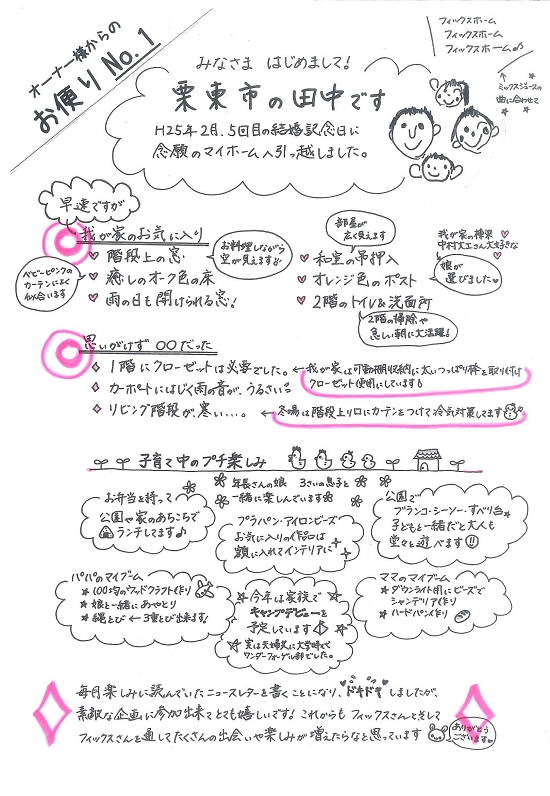 オーナー様からの
お便り No.1
フィックスホーム
フィックスホーム
フィックスホーム♪
ミックスジュースの
曲に合わせて
みなさま はじめまして!
栗東市の田中です
H25年2月、5回目の結婚記念日に
念願のマイホームへ引っ越しました。
早速ですが
我が家のお気に入り
♥ 階段上の窓
お料理しながら
空が見えます
♥ 癒しのオーク色の床
ベビーピンクの
カーテンによく
似合います
♥ 雨の日も開けられる窓!
部屋が
広く見えます
♥ 和室の吊押入
♥ オレンジ色のポスト
我が家の棟梁
中村大工さん大好きな
娘が
選びました
♥ 2階のトイレ&洗面所
2階の掃除や
忙しい朝に大活躍!
思いがけず 〇〇だった
♦ 1階にクローゼットは必要でした。
← 我が家は可動棚収納に太いつっぱり棒を取り付け
クローゼット使用にしています!
♦ カーポートにはじく雨の音が、うるさい
♦ リビング階段が寒い…。
← 冬場は階段上り口にカーテンをつけて冷気対策してます
子育て中のプチ楽しみ
年長さんの娘 3さいの息子と
一緒に楽しんでいます
お弁当を持って
公園や家のあちこちで
ランチしてます♪
プラバン・アイロンビーズ
お気に入りの作品は
額に入れてインテリアに
公園で
ブランコ・シーソー・すべり台
子どもと一緒だと大人も
堂々と遊べます!!
パパのマイブーム
★ 100均のウッドクラフト作り
★ 娘と一緒にあやとり
★ 縄とび ← 3重とび出来ます!
☆ 今年は家族で
キャンプデビューを
予定しています
☆ 実は夫婦共に大学時代
ワンダーフォーゲル部でした。
ママのマイブーム
★ ダウンライト用にビーズで
シャンデリア作り
★ ハードパン作り
毎月楽しみに読んでいたニュースレターを書くことになり、ドキドキしましたが、
素敵な企画に参加出来てとても嬉しいです! これからもフィックスさんと、そして
フィックスさんを通してたくさんの出会いや楽しみが増えたらなと思っています
ありがとう
ございます